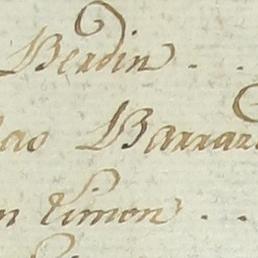 Berdin . .
lao Barraz
n Simon . .